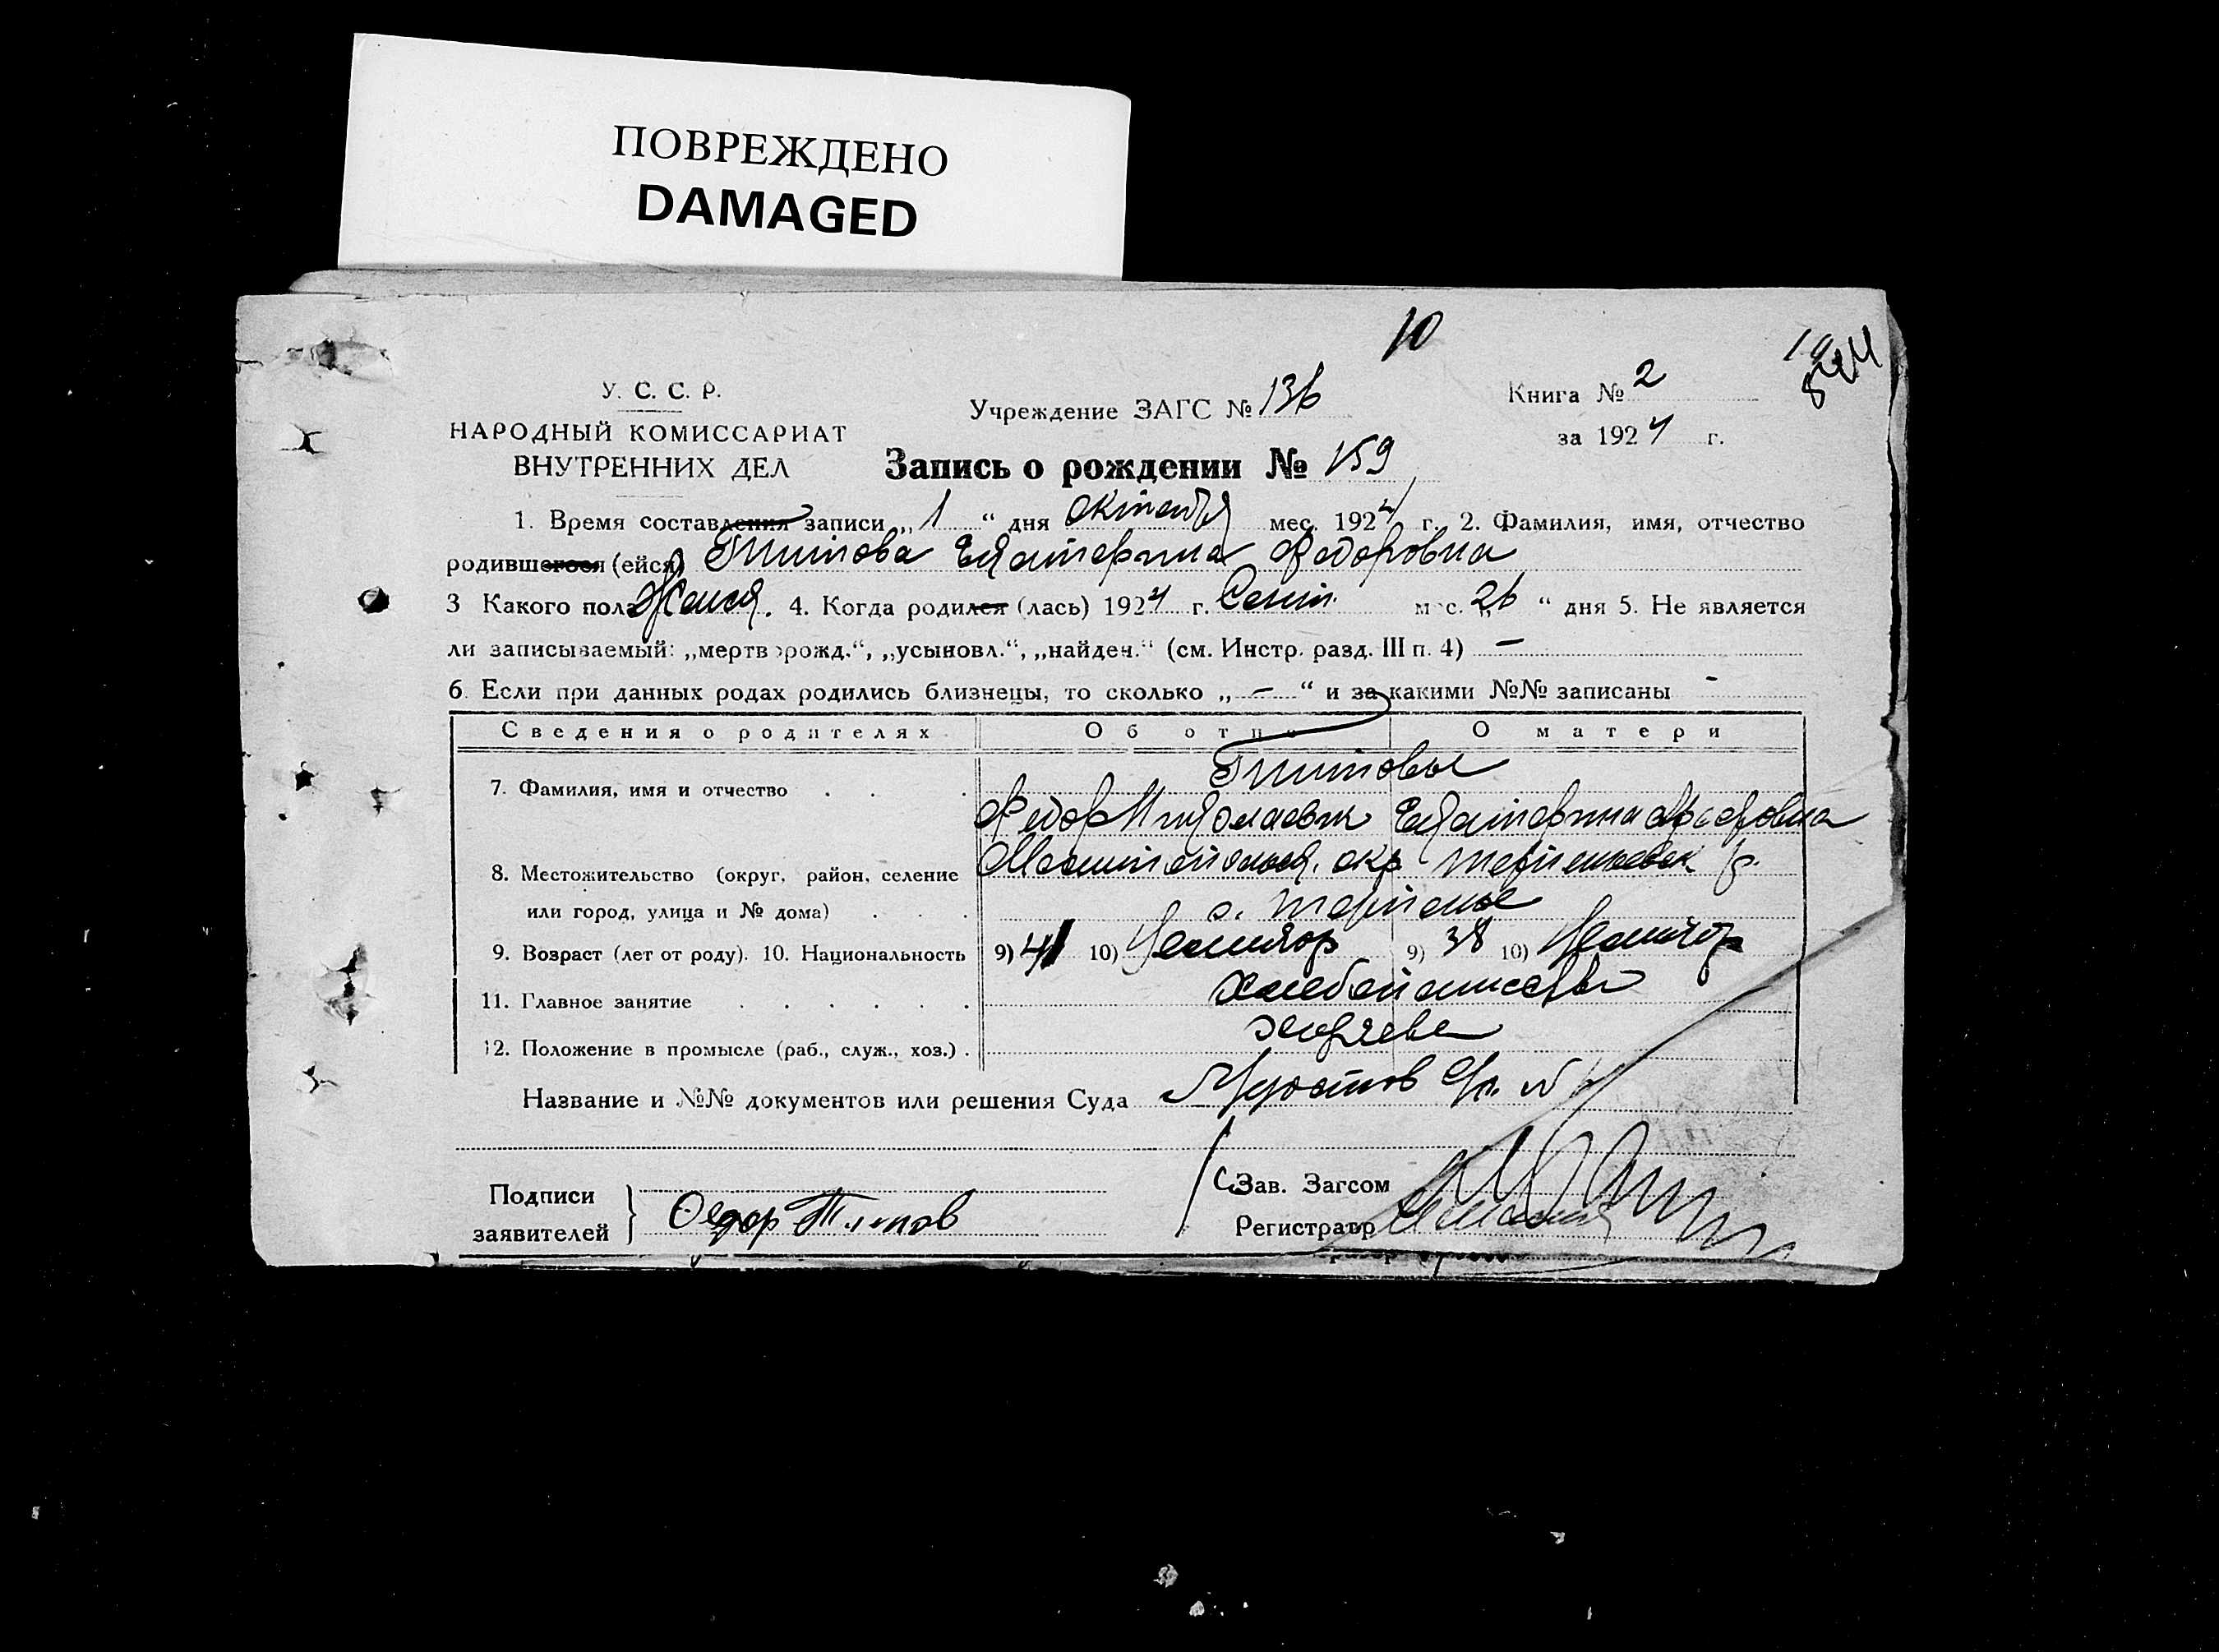 ПОВРЕЖДЕНО
DAMAGED
10
У. С. С. Р.
НАРОДНЫЙ КОМИССАРИАТ
ВНУТРЕННИХ ДЕЛ
Учреждение ЗАГС № 136
Книга № 2
за 1924 г.
Запись о рождении № 159
1. Время составления записи „ 1 “ дня октября мес. 1924 г. 2. Фамилия, имя, отчество
родившегося (ейся) Титова Екатерина Федоровна
3 Какого пола Женск. 4. Когда родился (лась) 1924 г. Сент. мес. „26 “ дня 5. Не является
ли записываемый: „мертворожд.“, „усыновл.“, „найден.“ (см. Инстр. разд. III п. 4) —
6. Если при данных родах родились близнецы, то сколько „ — “ и за какими №№ записаны -
Сведения о родителях Об отце О матери
7. Фамилия, имя и отчество Титовы
Федор Николаевич Екатерина
8. Местожительство (округ, район, селение окр р.
или город, улица и № дома) с. Терпенье
9. Возраст (лет от роду). 10. Национальность 9) 41 10) 9) 38 10)
11. Главное занятие хлебопашество
12. Положение в промысле (раб., служ., хоз.) . хозяева
Название и №№ документов или решения Суда
Подписи
заявителей } Федор Титов
Зав. Загсом
Регистратор